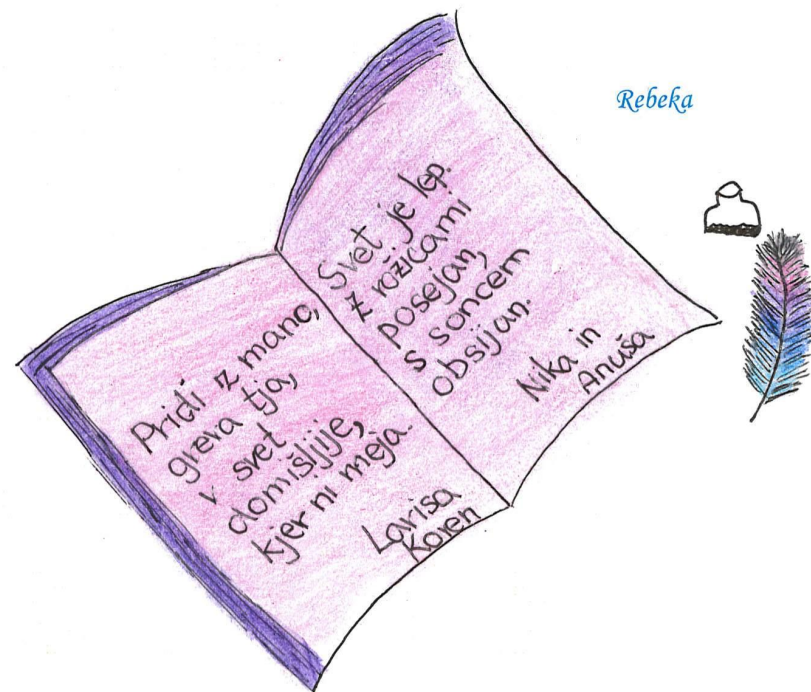 Rebeka
Pridi z mano,
greva tja,
v svet
domišljije,
kjer ni meja.
Larisa
Koren
Svet je lep.
z rožicami
posejan,
s soncem
obsijan.
Nika in
Anuša